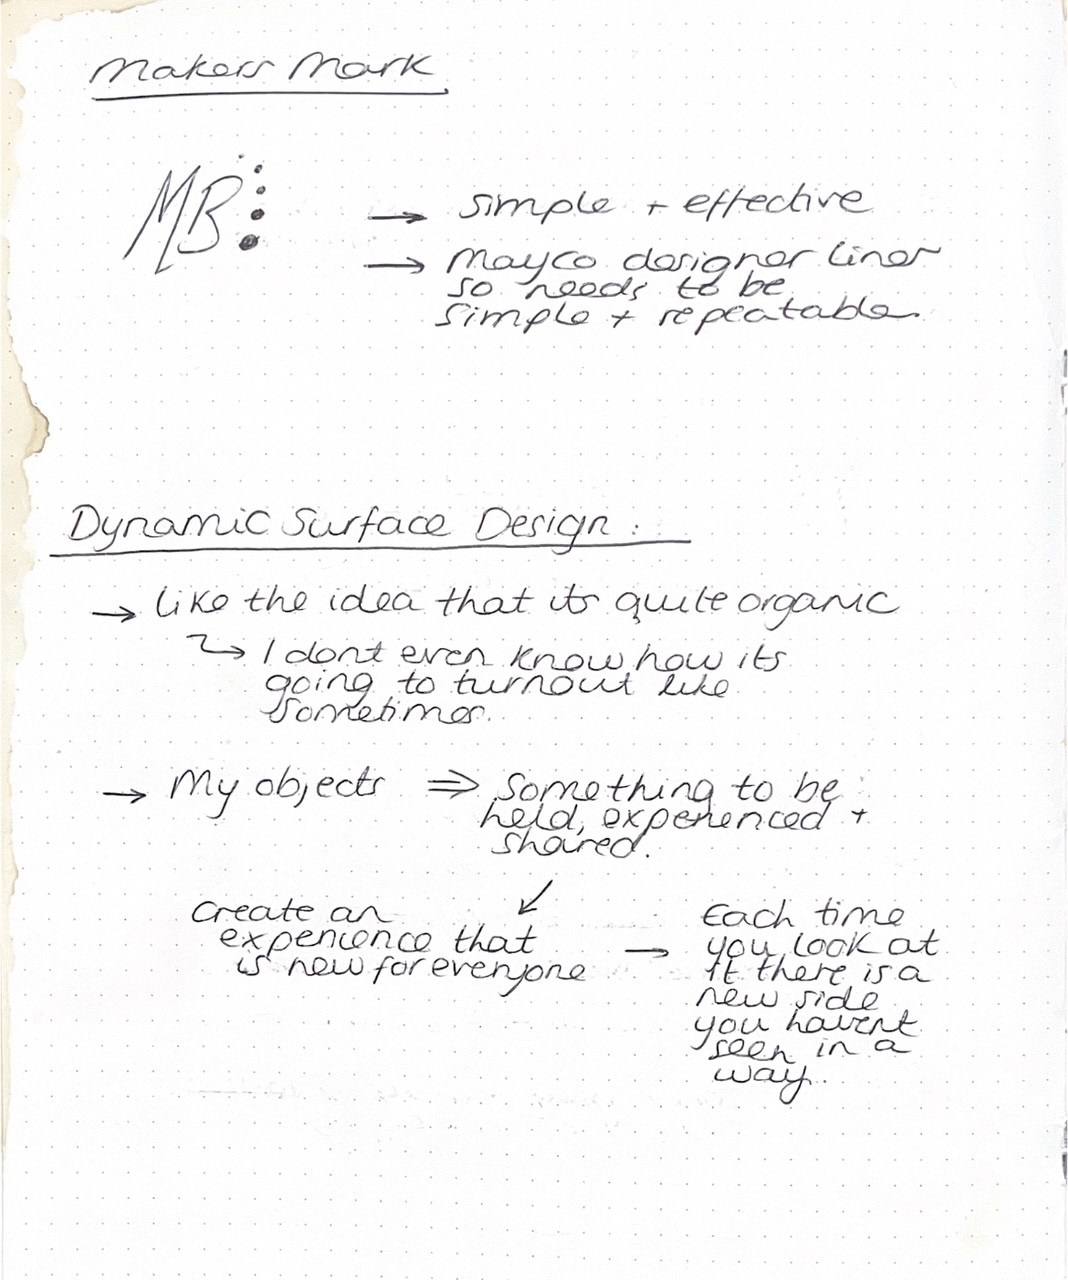 Makers Mark
MB
→ simple + effective
→ Mayco designer liner
so needs to be
simple + repeatable.
Dynamic Surface Design :
→ Like the idea that its quite organic
↳ I dont even know how its
going to turnout like
sometimes.
→ My objects ⇒ Something to be
held, experienced +
shared.
↙
Create an
experience that
is new for everyone
→ Each time
you look at
it there is a
new side
you havent
seen in a
way.